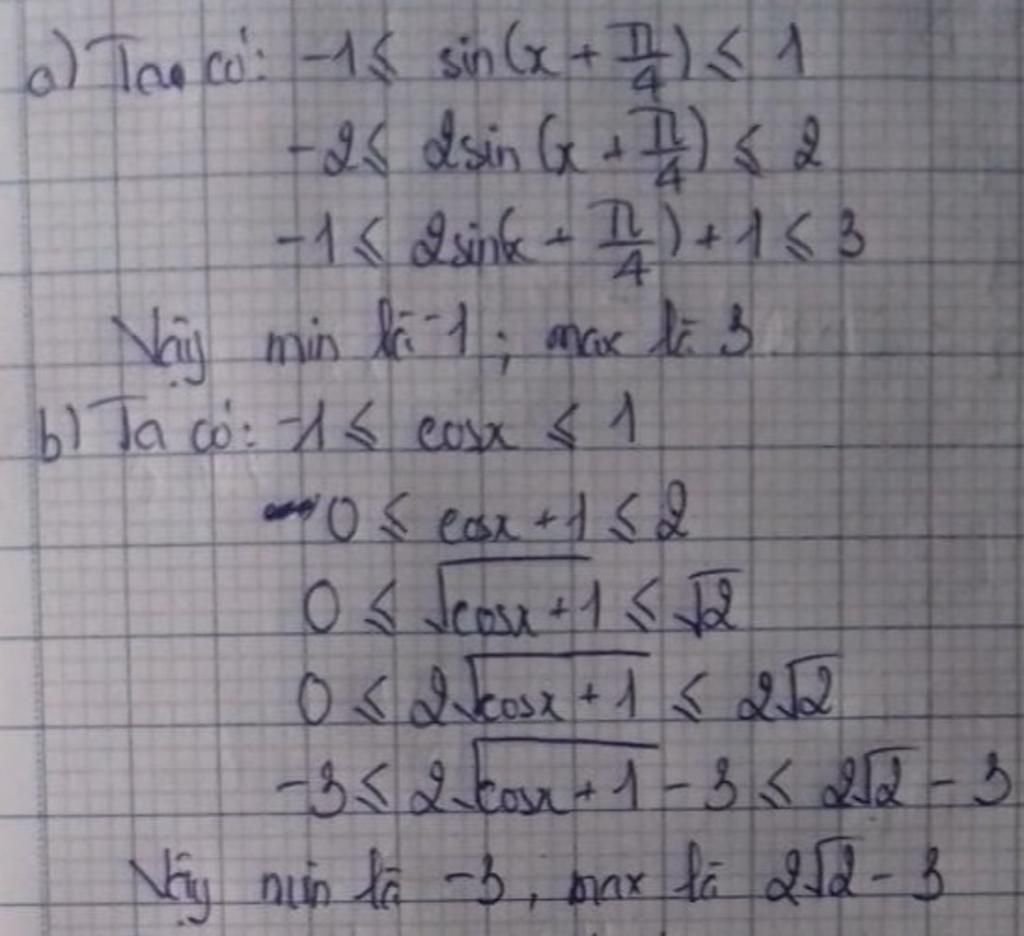 a) Ta có: -1 ≤ sin(x + π/4) ≤ 1
-2 ≤ 2sin(x + π/4) ≤ 2
-1 ≤ 2sin(x + π/4) + 1 ≤ 3
Vậy min là -1; max là 3
b) Ta có: -1 ≤ cosx ≤ 1
0 ≤ cosx + 1 ≤ 2
0 ≤ √(cosx + 1) ≤ √2
0 ≤ 2√(cosx + 1) ≤ 2√2
-3 ≤ 2√(cosx + 1) - 3 ≤ 2√2 - 3
Vậy min là -3, max là 2√2 - 3